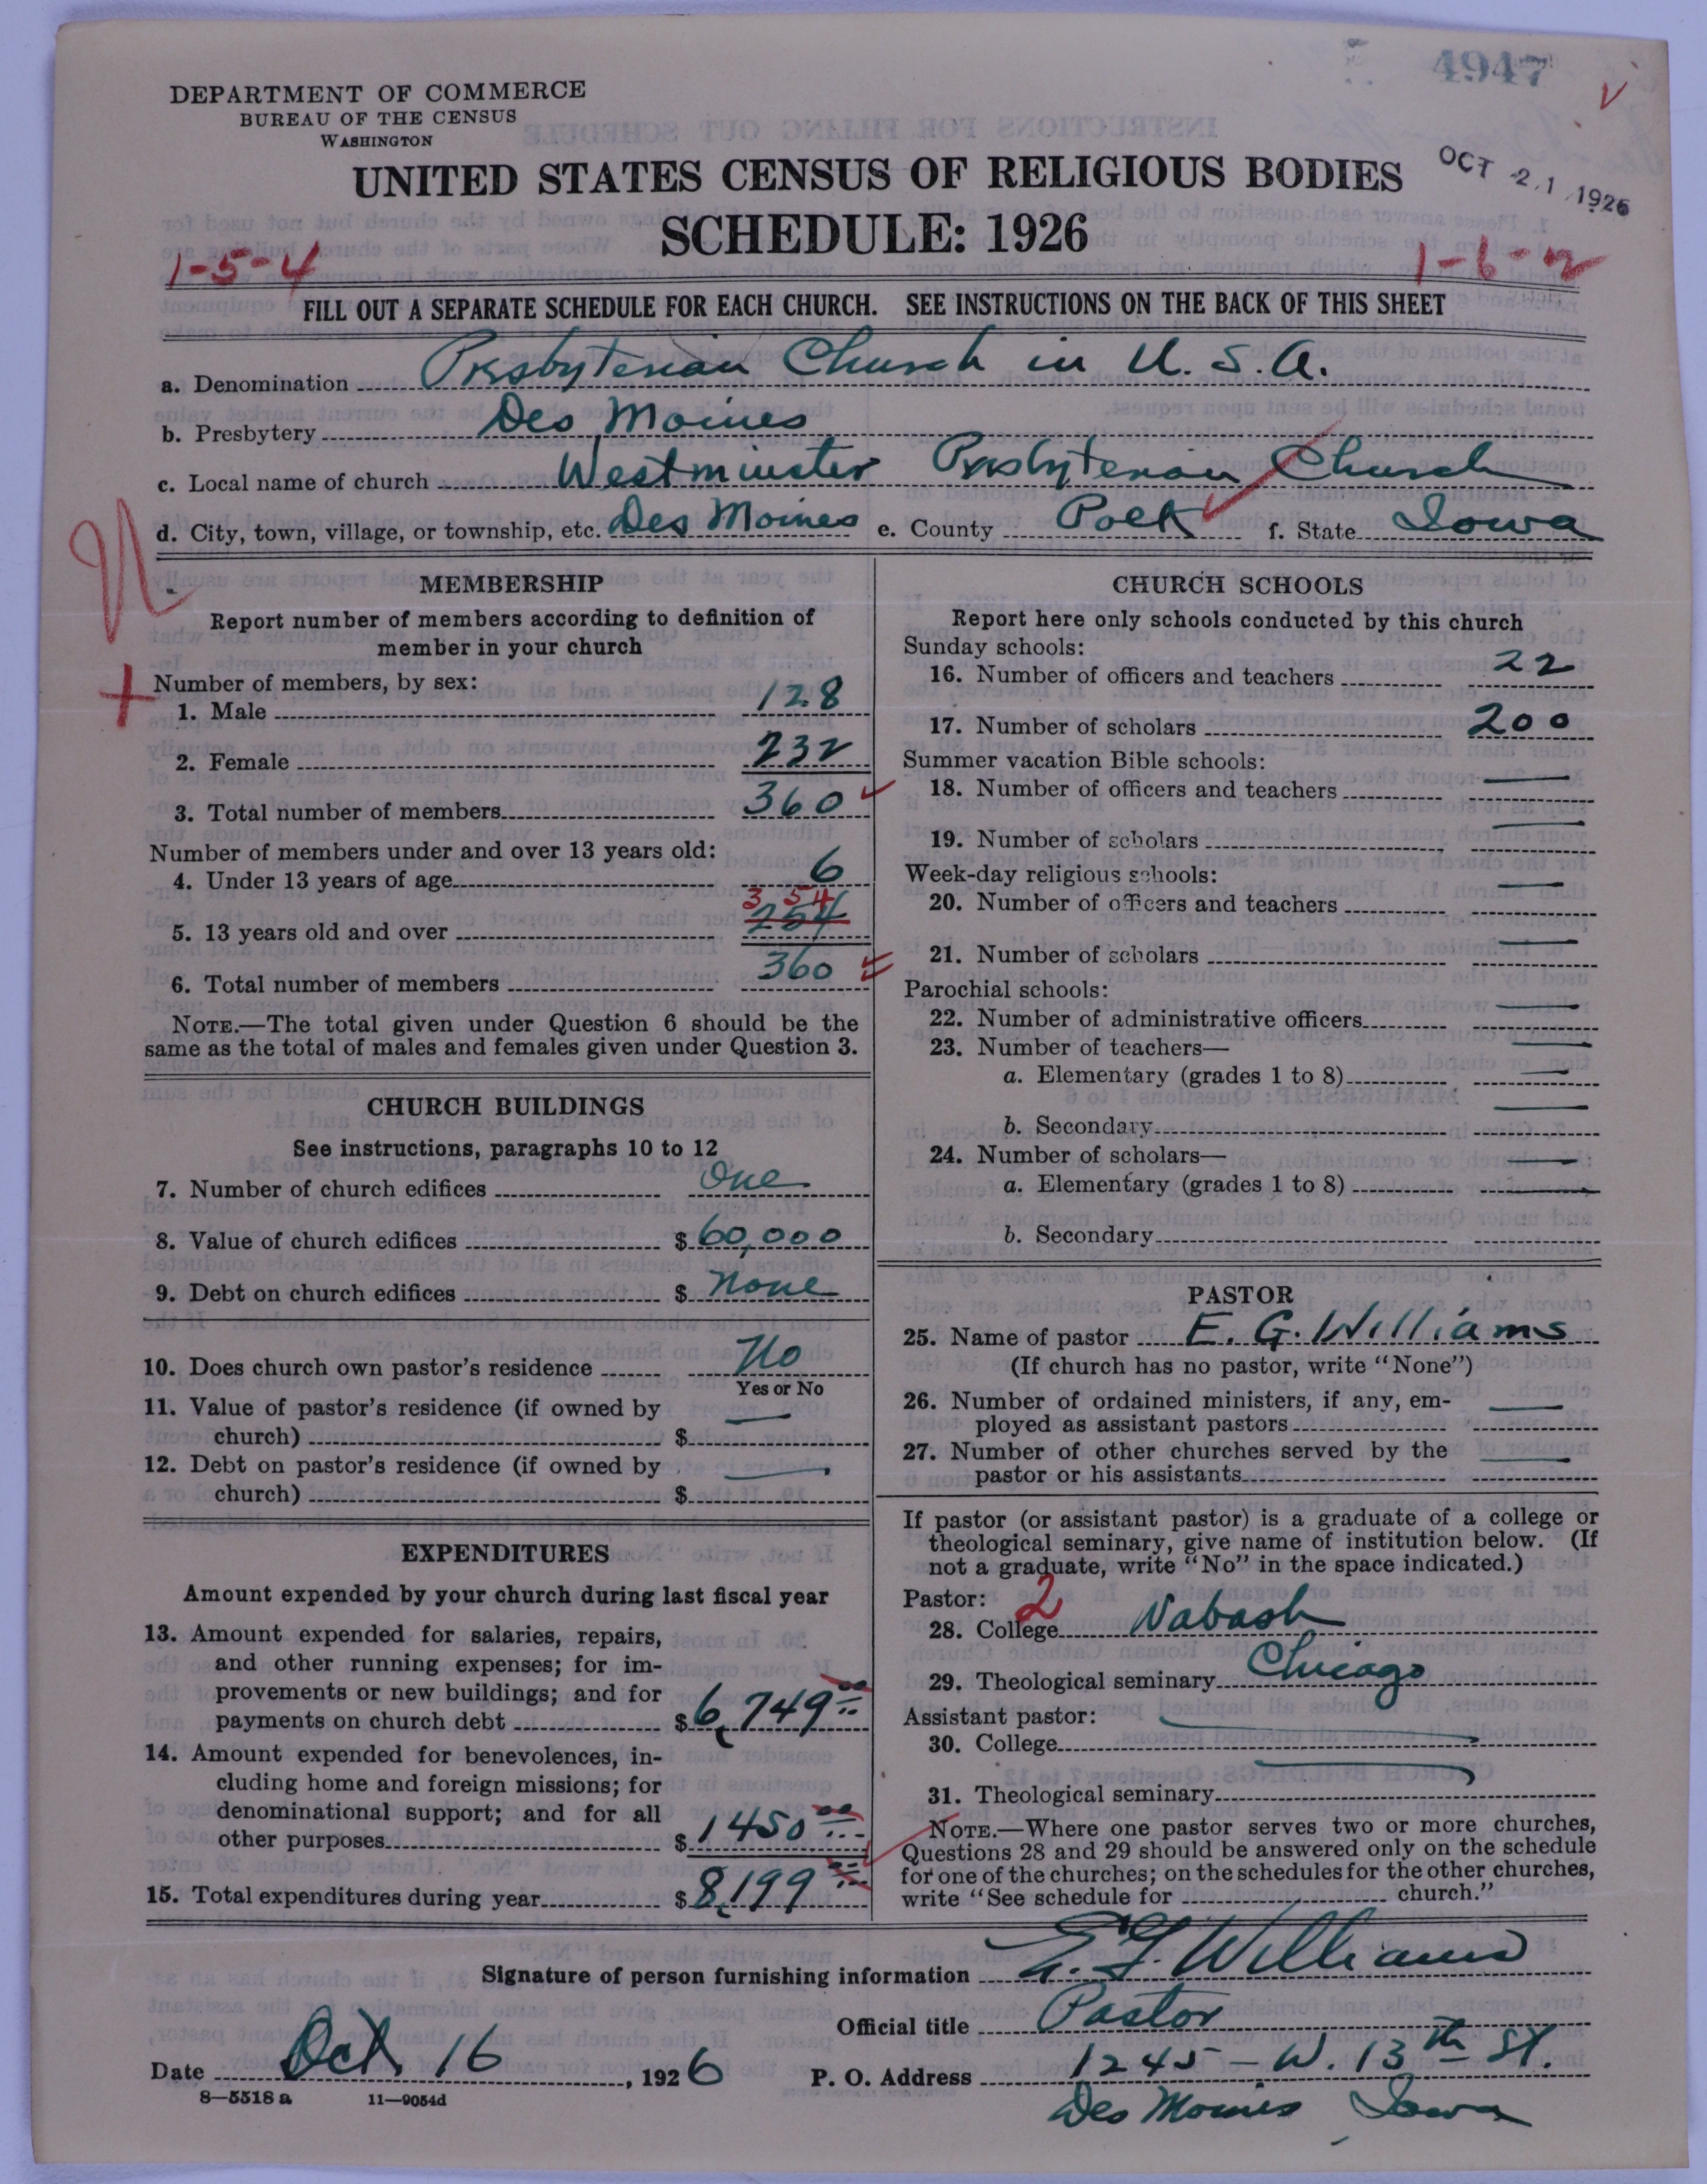 4947
DEPARTMENT OF COMMERCE
BUREAU OF THE CENSUS
WASHINGTON
UNITED STATES CENSUS OF RELIGIOUS BODIES
SCHEDULE: 1926
OCT 21 1926
1-5-4
1-6-2
FILL OUT A SEPARATE SCHEDULE FOR EACH CHURCH. SEE INSTRUCTIONS ON THE BACK OF THIS SHEET
a. Denomination Presbyterian Church in U.S.A.
b. Presbytery Des Moines
c. Local name of church Westminster Presbyterian Church
d. City, town, village, or township, etc. Des Moines e. County Polk f. State Iowa
MEMBERSHIP
Report number of members according to definition of
member in your church
Number of members, by sex:
1. Male 128
2. Female 232
3. Total number of members 360
Number of members under and over 13 years old:
4. Under 13 years of age 6
354
5. 13 years old and over 254
6. Total number of members 360
NOTE.—The total given under Question 6 should be the
same as the total of males and females given under Question 3.
CHURCH BUILDINGS
See instructions, paragraphs 10 to 12
7. Number of church edifices One
8. Value of church edifices $ 60,000
9. Debt on church edifices $ None
10. Does church own pastor's residence No
Yes or No
11. Value of pastor's residence (if owned by
church) $ —
12. Debt on pastor's residence (if owned by
church) $ —
EXPENDITURES
Amount expended by your church during last fiscal year
13. Amount expended for salaries, repairs,
and other running expenses; for im-
provements or new buildings; and for
payments on church debt $ 6,749 00
14. Amount expended for benevolences, in-
cluding home and foreign missions; for
denominational support; and for all
other purposes $ 1450 00
15. Total expenditures during year $ 8,199 00
CHURCH SCHOOLS
Report here only schools conducted by this church
Sunday schools:
16. Number of officers and teachers 22
17. Number of scholars 200
Summer vacation Bible schools:
18. Number of officers and teachers —
19. Number of scholars —
Week-day religious schools:
20. Number of officers and teachers —
21. Number of scholars —
Parochial schools:
22. Number of administrative officers —
23. Number of teachers—
a. Elementary (grades 1 to 8) —
b. Secondary —
24. Number of scholars—
a. Elementary (grades 1 to 8) —
b. Secondary
PASTOR
25. Name of pastor E. G. Williams
(If church has no pastor, write "None")
26. Number of ordained ministers, if any, em-
ployed as assistant pastors —
27. Number of other churches served by the
pastor or his assistants —
If pastor (or assistant pastor) is a graduate of a college or
theological seminary, give name of institution below. (If
not a graduate, write "No" in the space indicated.)
Pastor: 2
28. College Wabash
29. Theological seminary Chicago
Assistant pastor:
30. College —
31. Theological seminary —
NOTE.—Where one pastor serves two or more churches,
Questions 28 and 29 should be answered only on the schedule
for one of the churches; on the schedules for the other churches,
write "See schedule for church."
Signature of person furnishing information E. G. Williams
Official title Pastor
Date Oct. 16, 1926 P. O. Address 1245 - W. 13th St.
8—5518 a 11—9054d
Des Moines Iowa